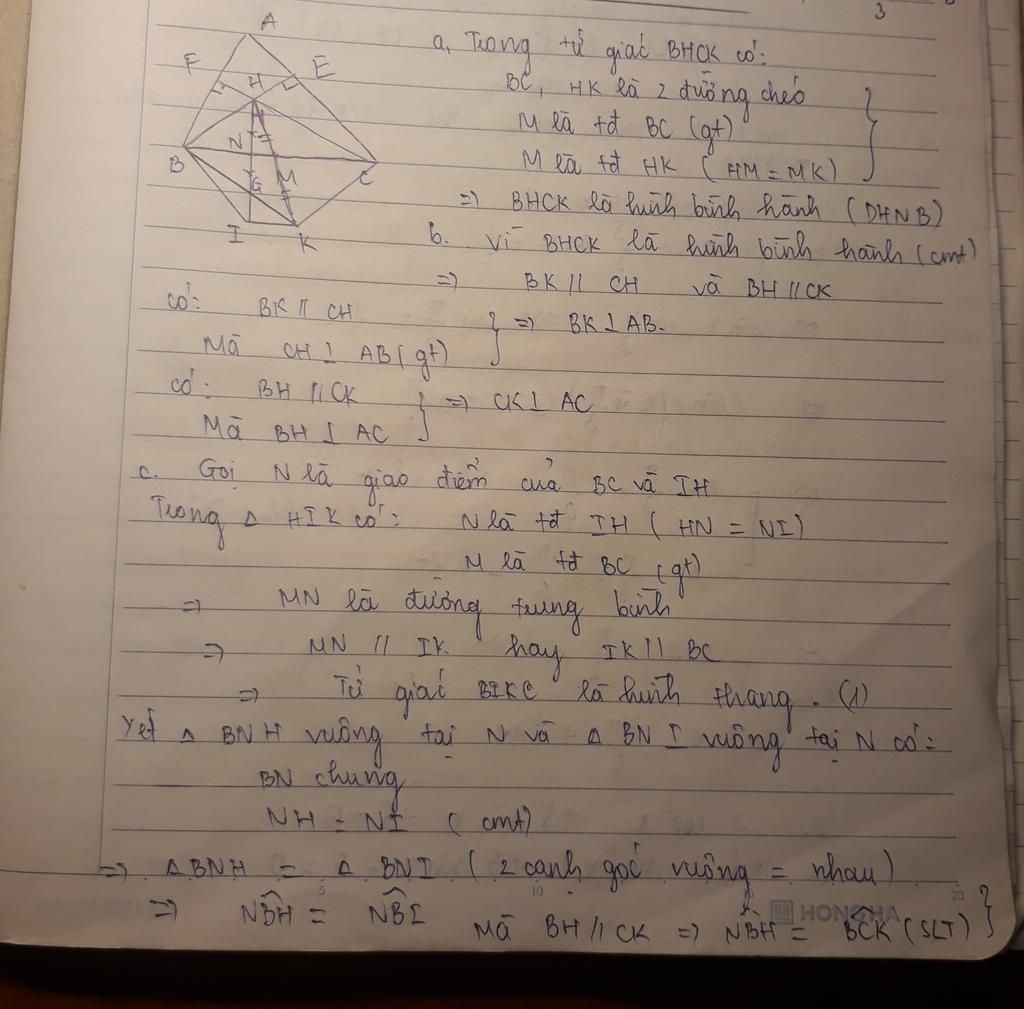 3
A
F
H
E
N
B
G
M
C
I
K
a, Trong tứ giác BHCK có:
BC, HK là 2 đường chéo
M là tđ BC (gt)
M là tđ HK (HM = MK)
=> BHCK là hình bình hành (DHNB)
b. Vì BHCK là hình bình hành (cmt)
=> BK // CH và BH // CK
có: BK // CH
Mà CH ⊥ AB (gt)
=> BK ⊥ AB.
có: BH // CK
Mà BH ⊥ AC
=> CK ⊥ AC
c. Gọi N là giao điểm của BC và IH
Trong △ HIK có: N là tđ IH (HN = NI)
M là tđ BC (gt)
=> MN là đường trung bình
=> MN // IK hay IK // BC
=> Tứ giác BIKC là hình thang. (1)
Xét △ BNH vuông tại N và △ BNI vuông tại N có:
BN chung
NH = NI (cmt)
=> △BNH = △BNI (2 cạnh góc vuông = nhau)
=> NB̂H = NB̂I Mà BH // CK => NB̂H = BĈK (SLT)
5 10 20
HONGHA